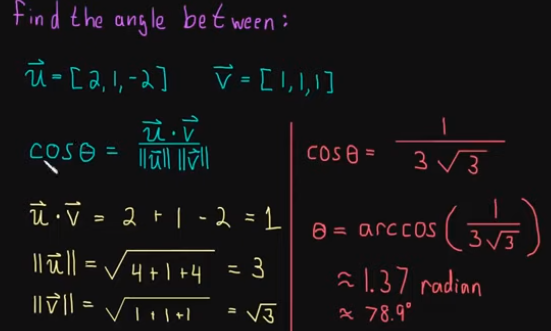 find the angle between:
u⃗ = [2,1,-2]    v⃗ = [1,1,1]
cosθ = u⃗ · v⃗ / ||u⃗|| ||v⃗||
u⃗ · v⃗ = 2 + 1 - 2 = 1
||u⃗|| = √(4+1+4) = 3
||v⃗|| = √(1+1+1) = √3
cosθ = 1 / 3√3
θ = arccos(1 / 3√3)
≈ 1.37 radian
≈ 78.9°